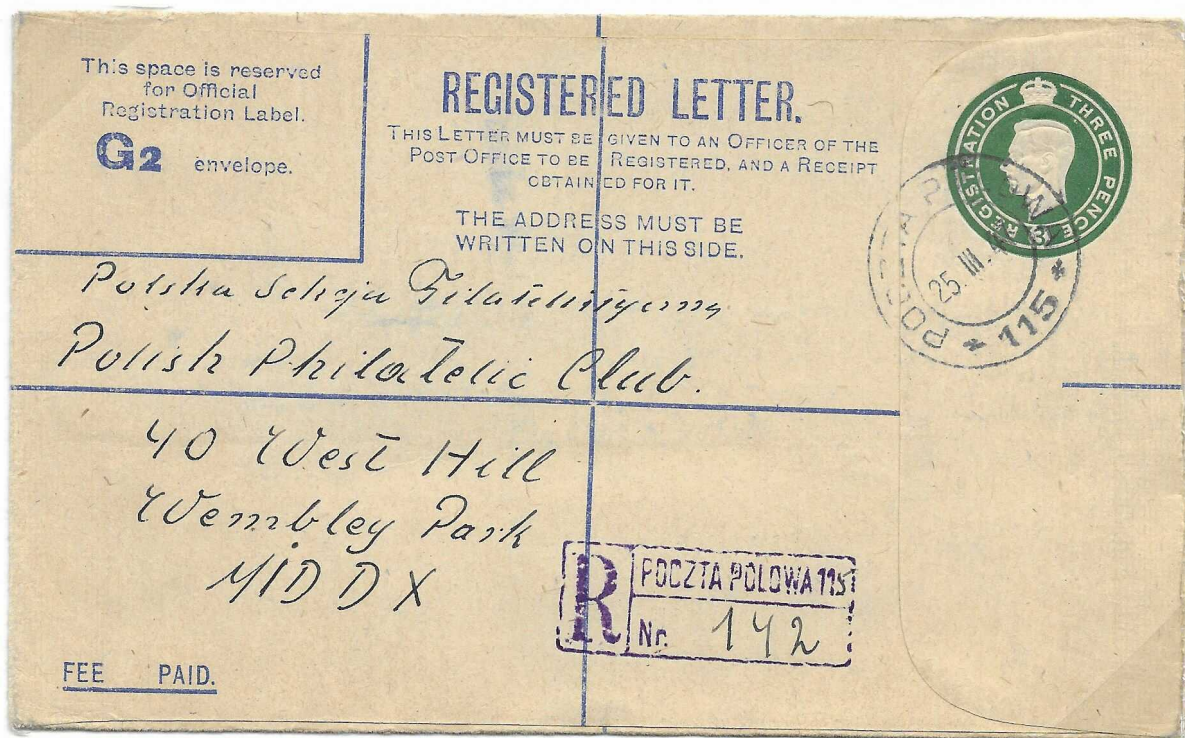 This space is reserved
for Official
Registration Label.
G2 envelope.
REGISTERED LETTER.
THIS LETTER MUST BE GIVEN TO AN OFFICER OF THE
POST OFFICE TO BE REGISTERED, AND A RECEIPT
OBTAINED FOR IT.
THE ADDRESS MUST BE
WRITTEN ON THIS SIDE.
REGISTRATION THREE PENCE
3
POCZTA POLOWA
25. III.
* 115 *
Polska Sekcja Filatelistyczna
Polish Philatelic Club.
40 West Hill
Wembley Park
MIDDX
R POCZTA POLOWA 115
Nr. 142
FEE PAID.